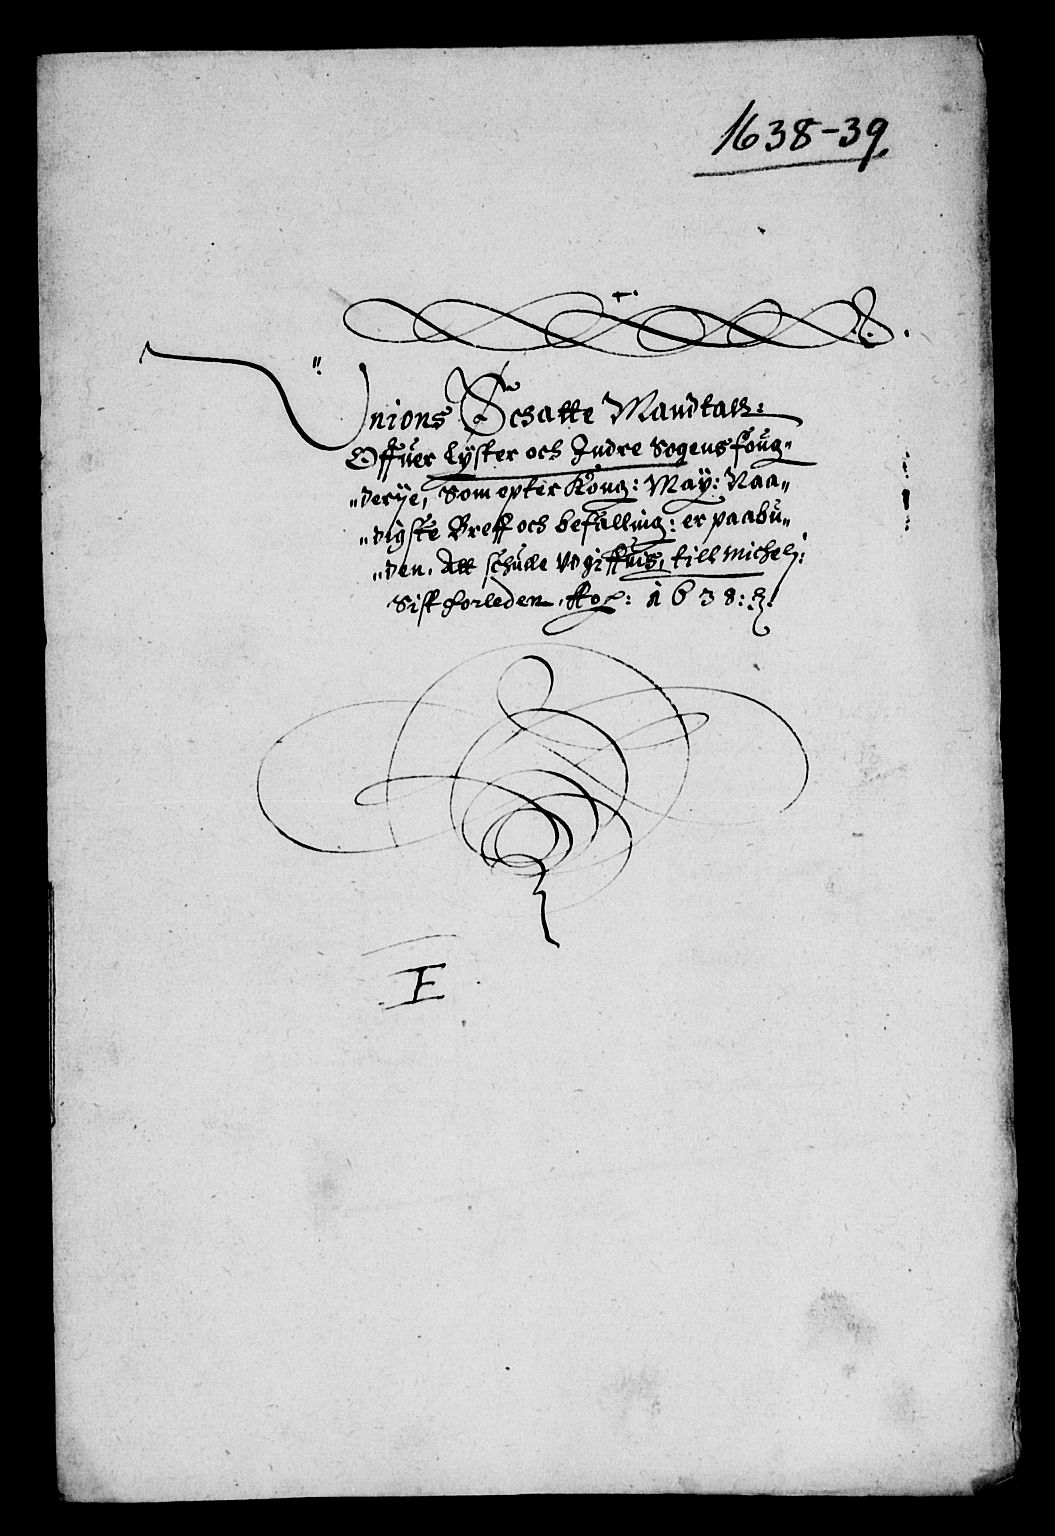 1638-39
Unions Schatte Mandtall:
Offuer Lyster och Indre Sogens foug-
"derije, som epter Kong: May: Naa"
"digste Breff och befalling: er paabu"
"den. Att schulle Vdgiffuis, till Michelj:
Sist forleden. A 1638:
E